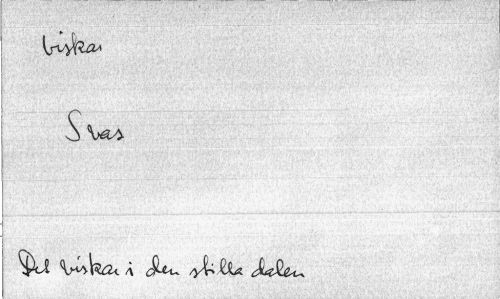 viskar
Svas
Det viskar i den stilla dalen